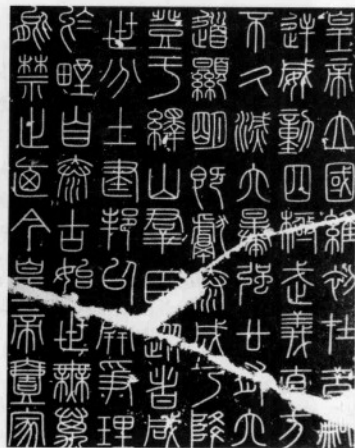 皇帝立國維初在昔嗣
逆威動四極武義直方
不久滅六暴強廿有六
道顯明既獻泰成乃降
登于繹山群臣從者咸
世分土建邦以開爭理
於野自泰古始世無萬
能禁止廼今皇帝壹家